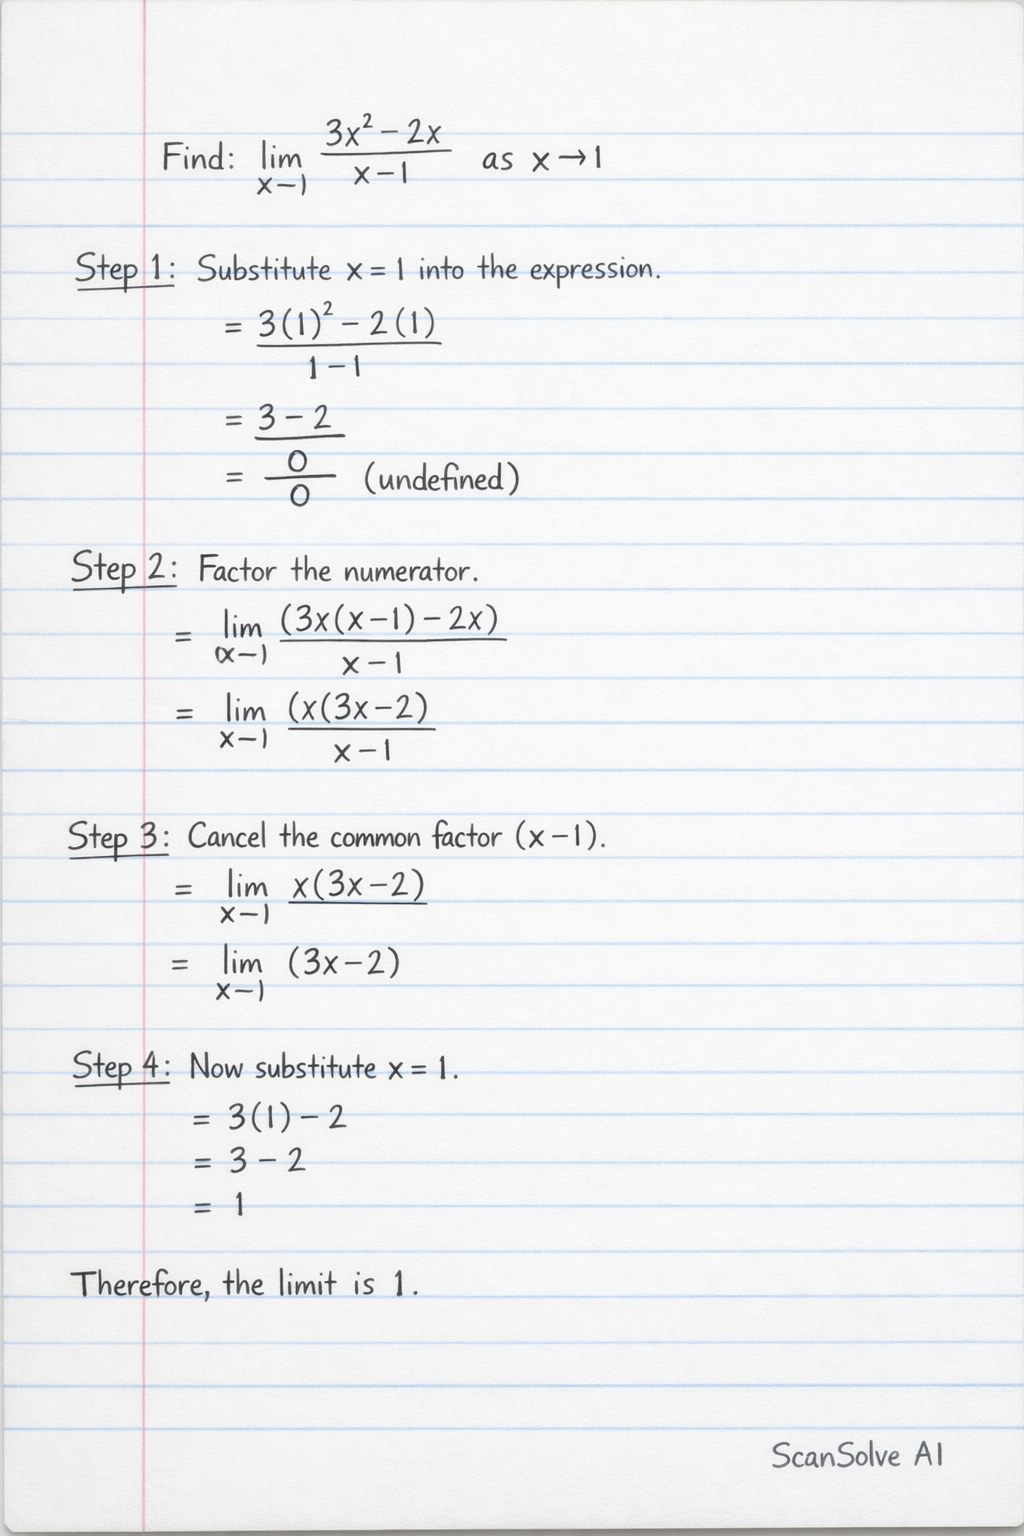 Find: lim x—1 (3x² − 2x)/(x − 1) as x → 1
Step 1: Substitute x = 1 into the expression.
= 3(1)² − 2(1)
1 − 1
= 3 − 2
= 0/0 (undefined)
Step 2: Factor the numerator.
= lim (x—1) (3x(x−1) − 2x)
x − 1
= lim x—1 (x(3x−2)
x − 1
Step 3: Cancel the common factor (x−1).
= lim x—1 x(3x−2)
= lim x—1 (3x−2)
Step 4: Now substitute x = 1.
= 3(1) − 2
= 3 − 2
= 1
Therefore, the limit is 1.
ScanSolve AI